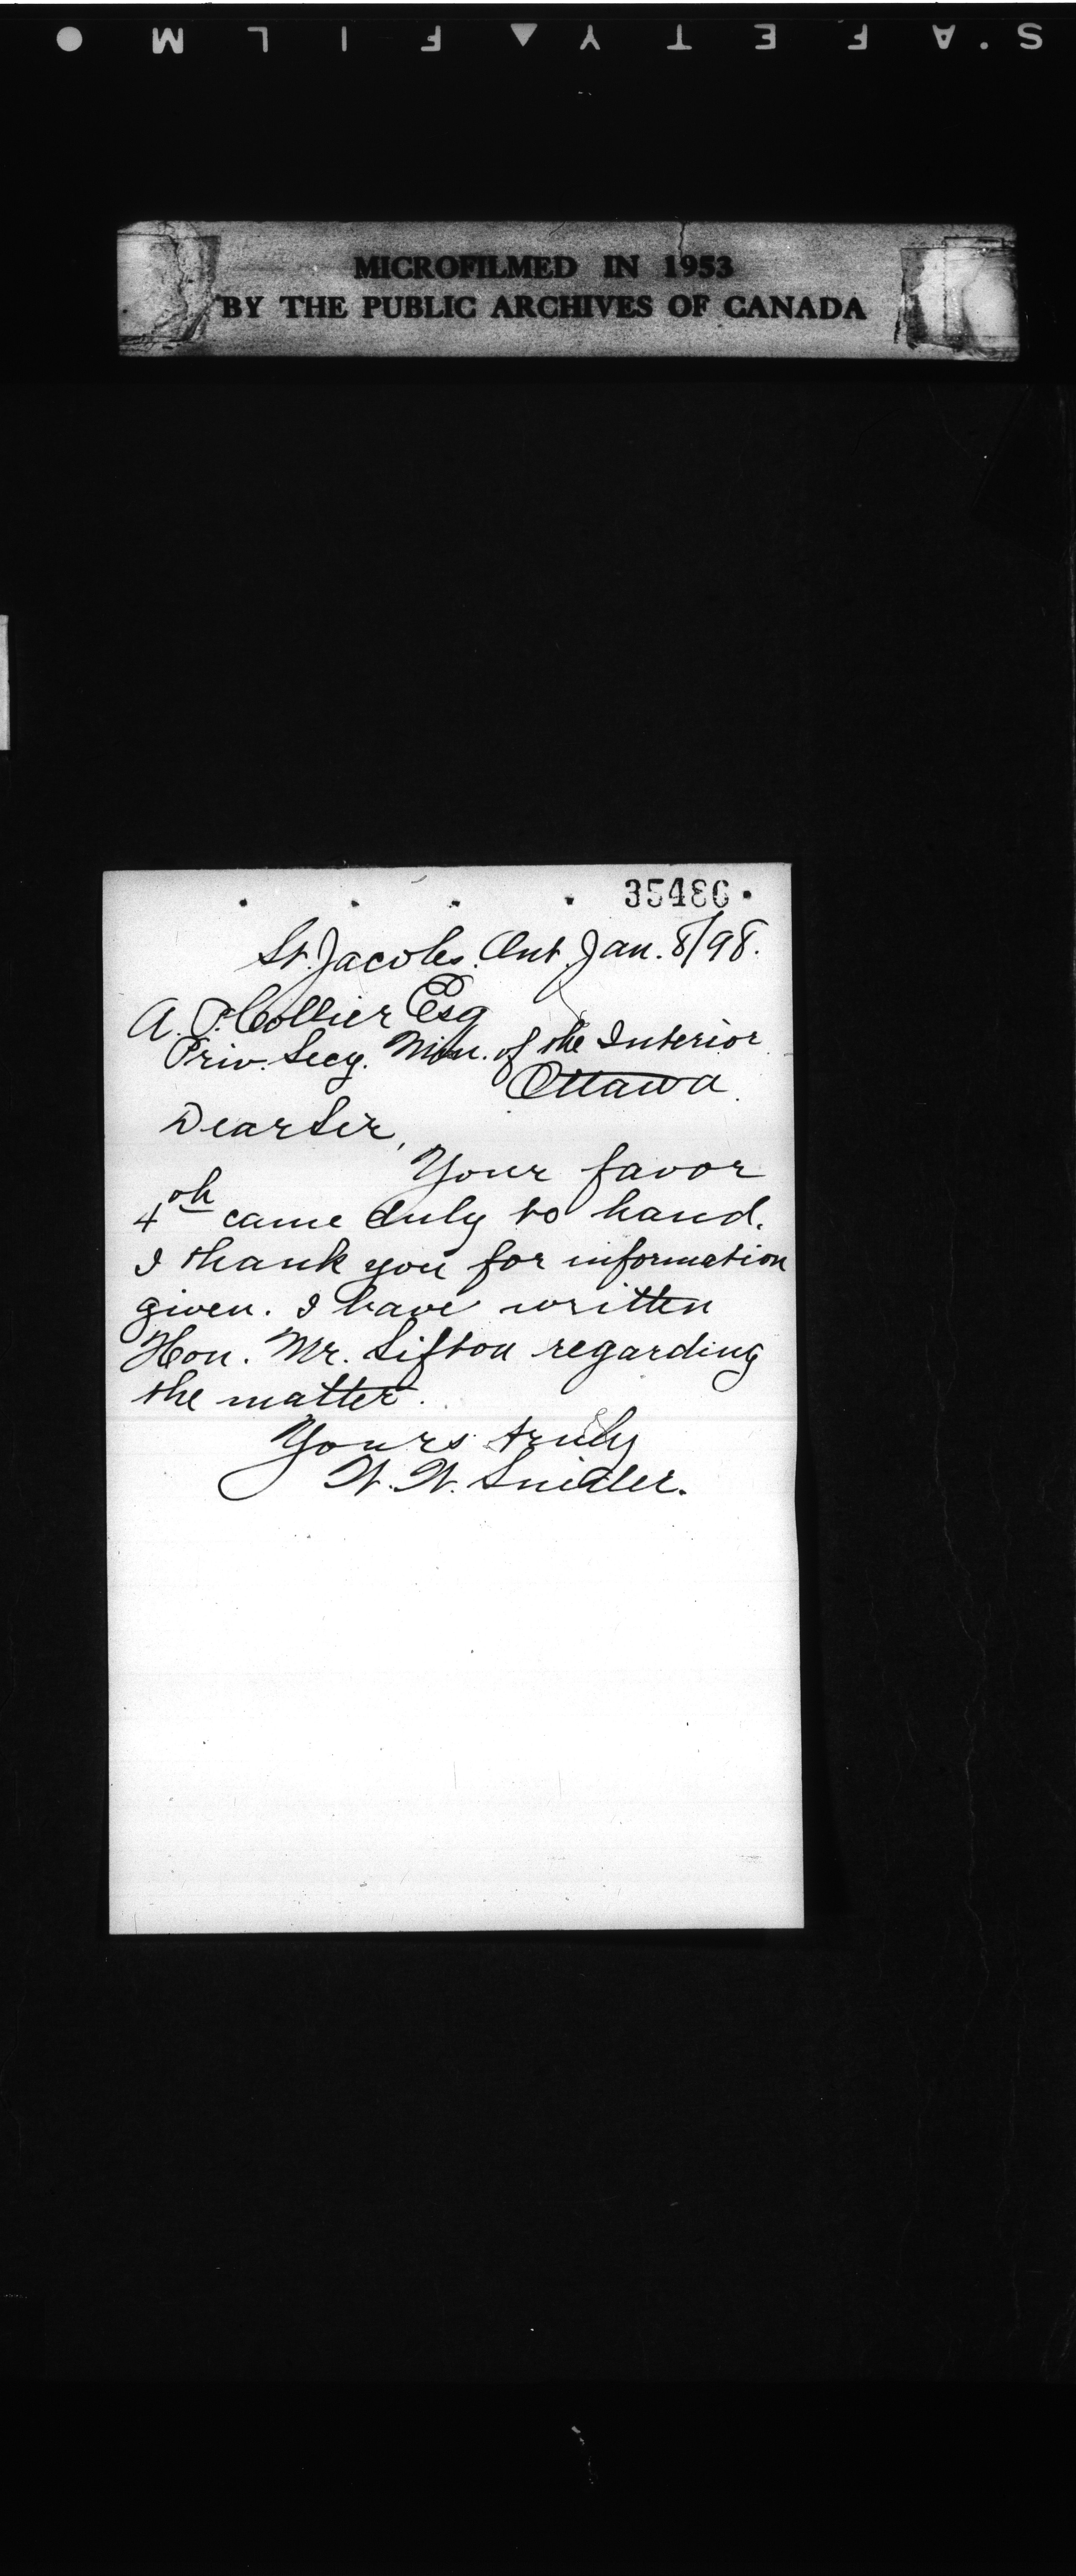 S.AFETY▲FILM●
MICROFILMED IN 1953
BY THE PUBLIC ARCHIVES OF CANADA
35486
St. Jacobs. Ont. Jan. 8/98.
A. P. Collier Esq
Priv. Secy. Min. of the Interior
Ottawa.
Dear Sir,
Your favor
4th came duly to hand.
I thank you for information
given. I have written
Hon. Mr. Sifton regarding
the matter.
Yours truly
W. W. Snider.